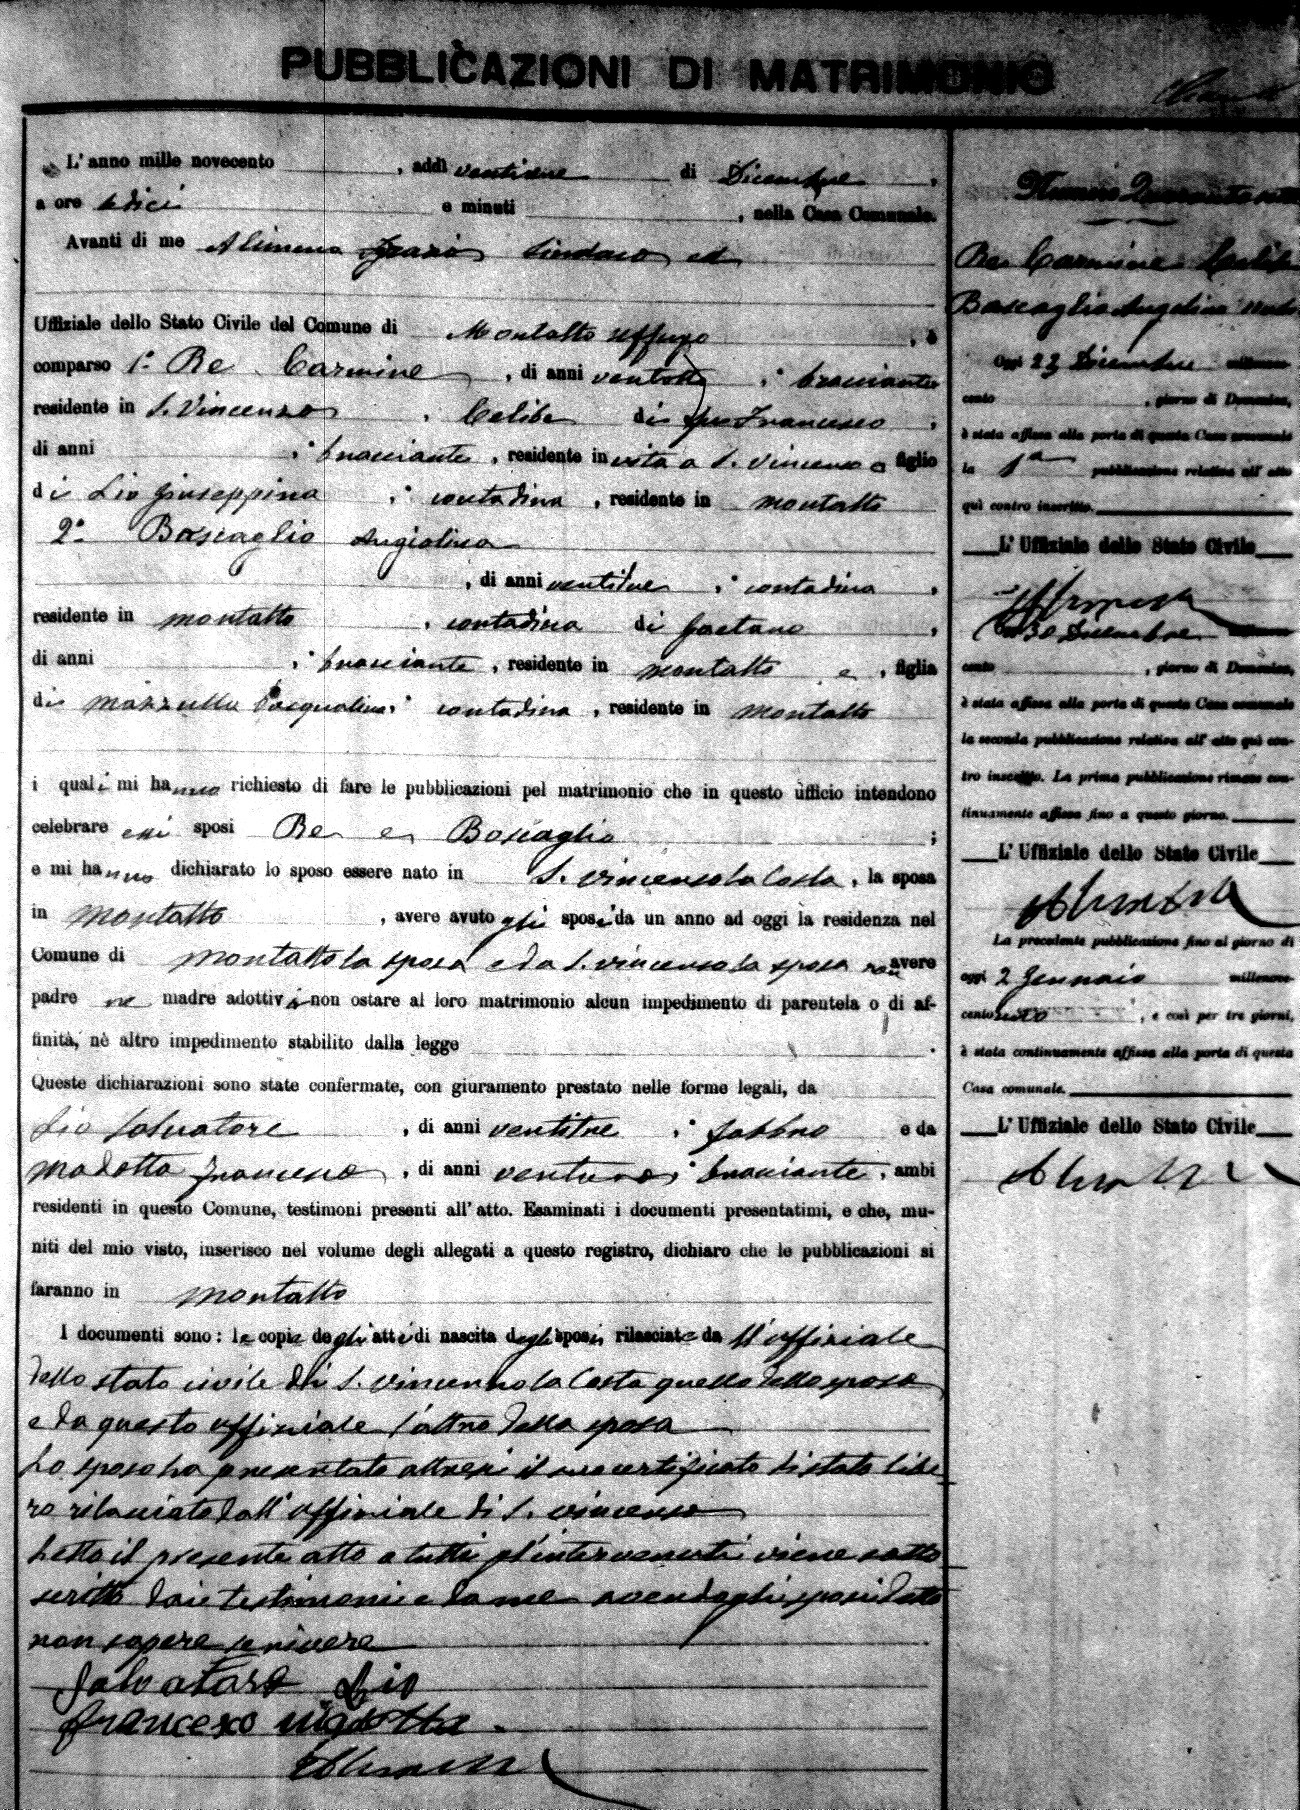 PUBBLICAZIONI DI MATRIMONIO
L'anno mille novecento , addì di Dicembre ,
a ore e minuti , nella Casa Comunale.
Avanti di me Alimena Sindaco ed
Uffiziale dello Stato Civile del Comune di Montalto Uffugo , è
comparso 1º Re Carmine , di anni ventotto , bracciante
residente in S. Vincenzo , Celibe di Francesco ,
di anni , bracciante , residente in vita a S. Vincenzo e figlio
di Lio Giuseppina , contadina , residente in Montalto
2º Boscaglio Angiolina
, di anni ventitre , contadina ,
residente in Montalto , contadina di Gaetano ,
di anni , bracciante , residente in Montalto e , figlia
di Mazzulla Pasqualina , contadina , residente in Montalto
i quali mi hanno richiesto di fare le pubblicazioni pel matrimonio che in questo ufficio intendono
celebrare essi sposi Re e Boscaglio ;
e mi hanno dichiarato lo sposo essere nato in S. Vincenzo la Costa , la sposa
in Montalto , avere avuto gli sposi da un anno ad oggi la residenza nel
Comune di Montalto la sposa e da S. Vincenzo la sposa non avere
padre ne madre adottivi non ostare al loro matrimonio alcun impedimento di parentela o di af-
finità, nè altro impedimento stabilito dalla legge .
Queste dichiarazioni sono state confermate, con giuramento prestato nelle forme legali, da
Lio Salvatore , di anni ventitre , fabbro e da
Madotta Francesco , di anni ventuno , bracciante , ambi
residenti in questo Comune, testimoni presenti all'atto. Esaminati i documenti presentatimi, e che, mu-
niti del mio visto, inserisco nel volume degli allegati a questo registro, dichiaro che le pubblicazioni si
faranno in Montalto
I documenti sono: le copie degli atti di nascita degli sposi rilasciate da ll'uffiziale
dello stato civile di S. Vincenzo la Costa quello dello sposo
e da questo uffiziale l'altro della sposa
Lo sposo ha presentato altresi il suo certificato di stato libe
ro rilasciato dall'uffiziale di S. Vincenzo
Letto il presente atto a tutti gl'intervenuti viene sotto
scritto dai testimoni e da me avendo gli sposi detto
non sapere scrivere
Salvatore Lio
Francesco Madotta
Numero
Re Carmine Celibe
Boscaglio Angelina
Oggi 23 Dicembre millenove-
cento , giorno di Domenica,
è stata affissa alla porta di questa Casa comunale
la 1ª pubblicazione relativa all'atto
quì contro inscritto.
L'Uffiziale dello Stato Civile
30 Dicembre millenove-
cento , giorno di Domenica,
è stata affissa alla porta di questa Casa comunale
la seconda pubblicazione relativa all'atto quì con-
tro inscritto. La prima pubblicazione rimase con-
tinuamente affissa fino a questo giorno.
L'Uffiziale dello Stato Civile
La precedente pubblicazione fino al giorno di
oggi 2 Gennaio millenove-
cento uno , e così per tre giorni,
è stata continuamente affissa alla porta di questa
Casa comunale.
L'Uffiziale dello Stato Civile